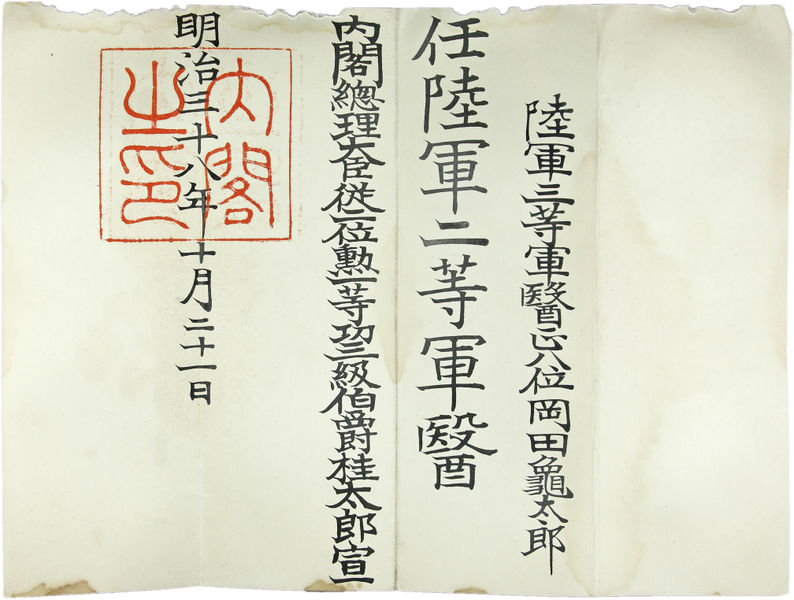 陸軍三等軍醫正八位岡田龜太郎
任陸軍二等軍醫
內閣總理大臣從二位勳一等功三級伯爵桂太郎宣
明治三十八年十月二十一日
內閣
之印